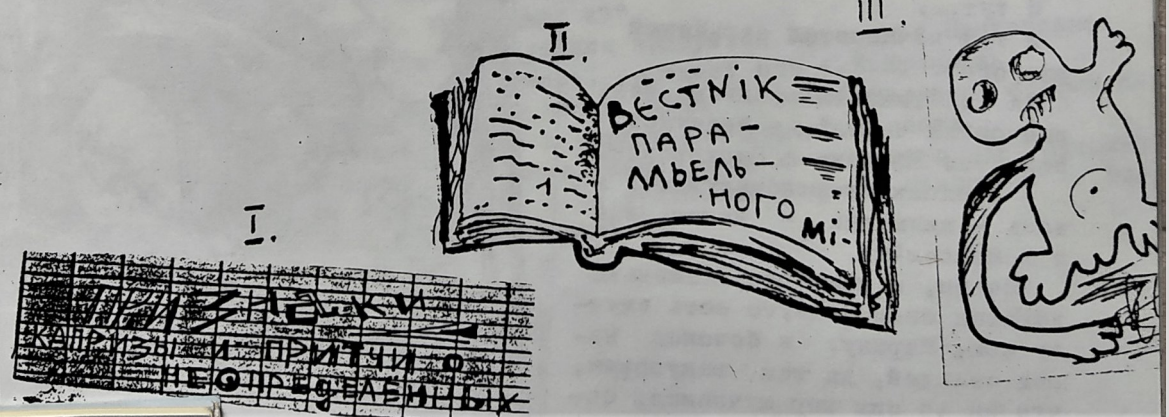 III.
II.
ВЕСТNiК
ПАРА-
ЛЛЬЕЛЬ-
НОГО
Мi-
I.
КАПРИЗЫ И ПРИТЧИ О
НЕОПРЕДЕЛЕННЫХ